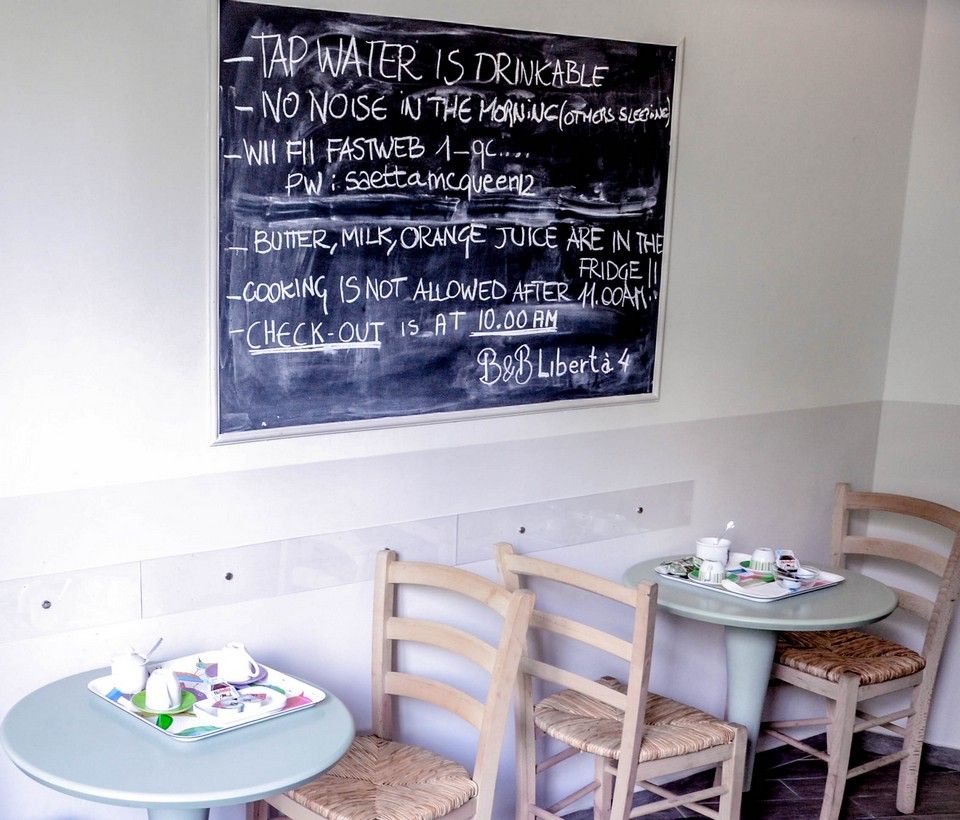 - TAP WATER IS DRINKABLE
- NO NOISE IN THE MORNING (OTHERS SLEEPING)
- WII FII FASTWEB 1-9C....
PW: saettamcqueen12
- BUTTER, MILK, ORANGE JUICE ARE IN THE
FRIDGE !!
- COOKING IS NOT ALLOWED AFTER 11.00AM.
- CHECK-OUT IS AT 10.00 AM
B&B Libertà 4